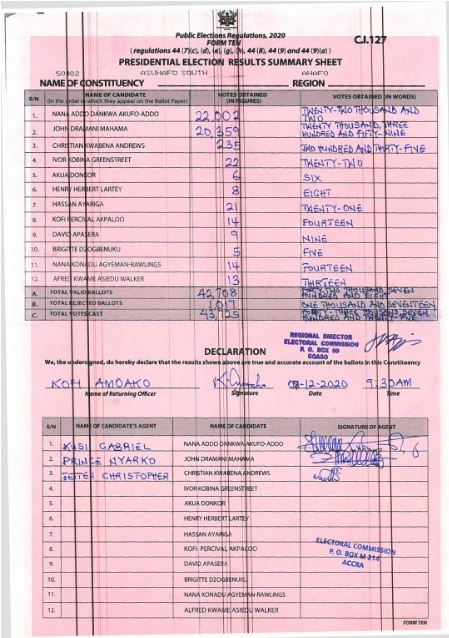 Public Elections Regulations, 2020
FORM TEN
C.I.127
( regulations 44 (7)(c), (d), (e), (g), (h), 44 (8), 44 (9) and 44 (9)(a) )
PRESIDENTIAL ELECTION RESULTS SUMMARY SHEET
ASUNAFO SOUTH AHAFO
NAME OF CONSTITUENCY REGION
S/N NAME OF CANDIDATE (In the order in which they appear on the Ballot Paper) VOTES OBTAINED (IN FIGURES) VOTES OBTAINED (IN WORDS)
1. NANA ADDO DANKWA AKUFO-ADDO 22,002 TWENTY-TWO THOUSAND AND TWO
2. JOHN DRAMANI MAHAMA 20,359 TWENTY THOUSAND, THREE HUNDRED AND FIFTY-NINE
3. CHRISTIAN KWABENA ANDREWS 235 TWO HUNDRED AND THIRTY-FIVE
4. IVOR KOBINA GREENSTREET 22 TWENTY-TWO
5. AKUA DONKOR 6 SIX
6. HENRY HERBERT LARTEY 8 EIGHT
7. HASSAN AYARIGA 21 TWENTY-ONE
8. KOFI PERCIVAL AKPALOO 14 FOURTEEN
9. DAVID APASERA 9 NINE
10. BRIGITTE DZOGBENUKU 5 FIVE
11. NANA KONADU AGYEMAN-RAWLINGS 14 FOURTEEN
12. ALFRED KWAME ASIEDU WALKER 13 THIRTEEN
A. TOTAL VALID BALLOTS 42,708 FORTY-TWO THOUSAND SEVEN HUNDRED AND EIGHT
B. TOTAL REJECTED BALLOTS 1,017 ONE THOUSAND AND SEVENTEEN
C. TOTAL VOTES CAST 43,725 FORTY-THREE THOUSAND SEVEN HUNDRED AND TWENTY-FIVE
REGIONAL DIRECTOR
ELECTORAL COMMISSION
P. O. BOX 60
GOASO
DECLARATION
We, the undersigned, do hereby declare that the results shown above are true and accurate account of the ballots in this Constituency
KOFI AMOAKO 08-12-2020 9:30AM
Name of Returning Officer Signature Date Time
S/N NAME OF CANDIDATE'S AGENT NAME OF CANDIDATE SIGNATURE OF AGENT
1. KUSI GABRIEL NANA ADDO DANKWA AKUFO-ADDO
2. PRINCE NYARKO JOHN DRAMANI MAHAMA
3. TETTEH CHRISTOPHER CHRISTIAN KWABENA ANDREWS
4. IVOR KOBINA GREENSTREET
5. AKUA DONKOR
6. HENRY HERBERT LARTEY
7. HASSAN AYARIGA
8. KOFI PERCIVAL AKPALOO
9. DAVID APASERA
10. BRIGITTE DZOGBENUKU
11. NANA KONADU AGYEMAN-RAWLINGS
12. ALFRED KWAME ASIEDU WALKER
ELECTORAL COMMISSION
P. O. BOX M 214
ACCRA
FORM TEN